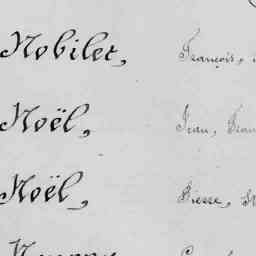 Nobilet, François,
Noël, Jean, Fran
Noël, Pierre,